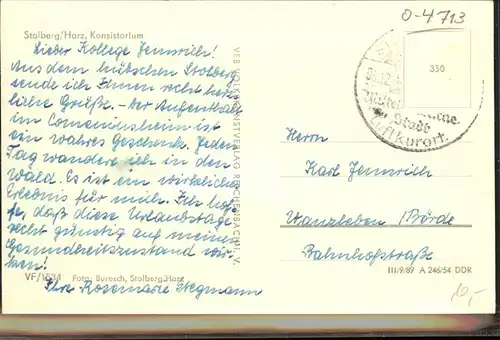 O-4713
Stolberg/Harz, Konsistorium
Lieber Kollege Jennrich!
Aus dem hübschen Stolberg
sende ich Ihnen recht herz-
liche Grüße. - Der Aufenthalt
im Comeniusheim ist
ein wahres Geschenk. Jeden
Tag wandere ich in den
Wald. Es ist ein wirkliches
Erlebnis für mich. Ich hof-
fe, daß diese Urlaubstage
recht günstig auf meinen
Gesundheitszustand wir-
ken!
Ihre Rosemarie Stegmann
VF/1534 Foto: Buresch, Stolberg/Harz
VEB VOLKSKUNSTVERLAG REICHENBACH I. V.
350
Stadt
Luftkurort
Herrn
Karl Jennrich
Wanzleben / Börde
Bahnhofstraße
III/9/89 A 246/54 DDR
10,-